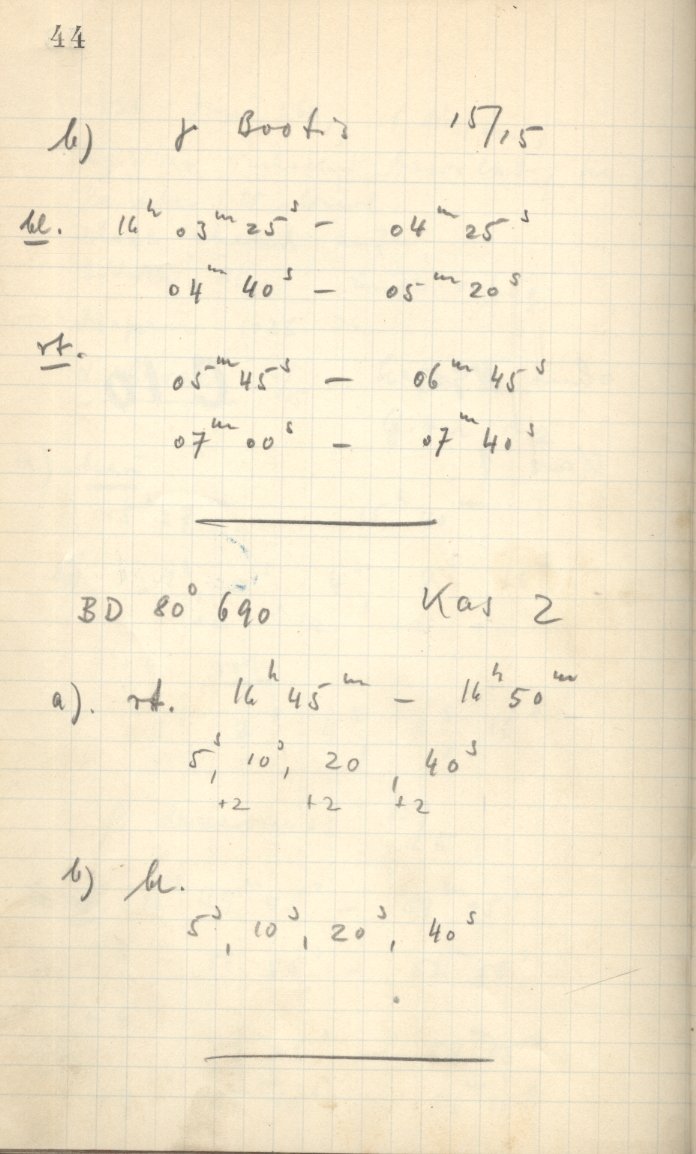 44
b) γ Bootis 15/15
bl. 14ʰ 03ᵐ 25ˢ – 04ᵐ 25ˢ
04ᵐ 40ˢ – 05ᵐ 20ˢ
rt.
05ᵐ 45ˢ – 06ᵐ 45ˢ
07ᵐ 00ˢ – 07ᵐ 40ˢ
BD 80° 690 Kas 2
a). rt. 14ʰ 45ᵐ – 14ʰ 50ᵐ
5ˢ, 10ˢ, 20, 40ˢ
+2 +2 +2
b) bl.
5ˢ, 10ˢ, 20ˢ, 40ˢ